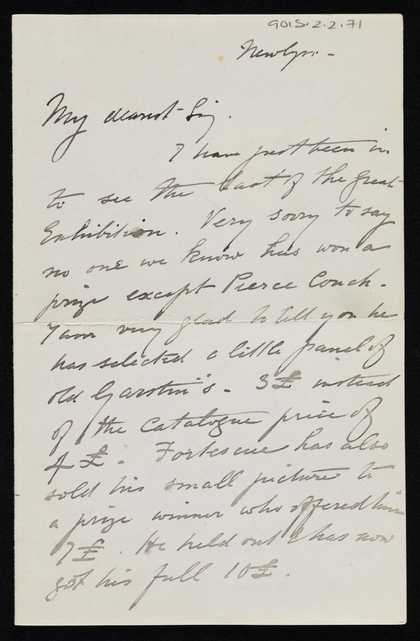 9015.2.2.71
Newlyn -
My dearest Sig.
I have just been in
to see the last of the great
Exhibition. Very sorry to say
no one we know has won a
prize except Pierce Couch.
I am very glad to tell you he
has selected a little panel of
old Garstin's - 3£ instead
of the Catalogue price of
4£. Fortescue has also
sold his small picture to
a prize winner who offered him
7£. He held out & has now
got his full 10£.